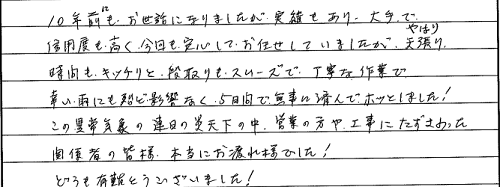 10年前にも、お世話になりましたが、実績もあり、大手で、
信用度も高く、今回も安心して、お任せしていましたが、矢張り(やはり)
時間も、キッチリと、段取りも、スムーズで、丁寧な作業で
幸い、雨にも殆ど影響なく、5日間で無事に済んでホッとしました!
この異常気象の連日の炎天下の中、営業の方や、工事にたずさわった
関係者の皆様、本当にお疲れ様でした!
どうも有難とうございました!